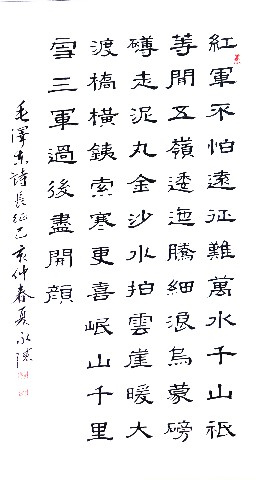 紅軍不怕遠征難萬水千山祇
等閒五嶺逶迤騰細浪烏蒙磅
礴走泥丸金沙水拍雲崖暖大
渡橋橫銕索寒更喜岷山千里
雪三軍過後盡開顏
毛澤东詩長征己亥仲春夏永